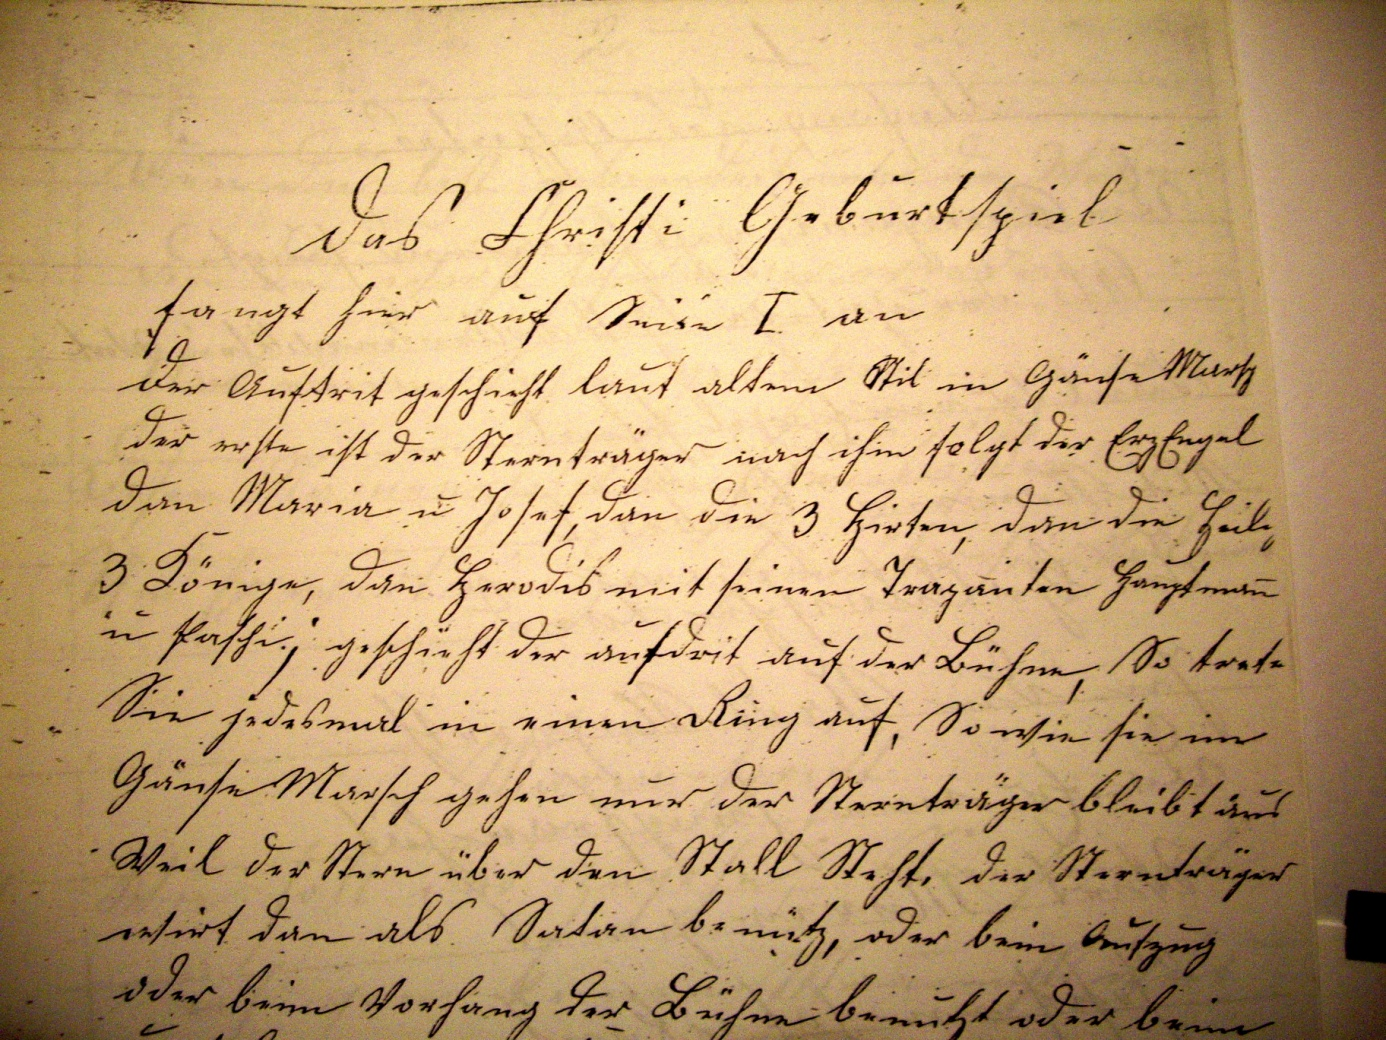 Das Christi Geburtspiel
fangt hier auf Seite I an
Der Auftrit geschieht laut altem Stil in Gänse Marsch
der erste ist der Sternträger nach ihm folgt der ErzEngel
dan Maria u Josef, dan die 3 Hirten, dan die Heilg
3 Könige, dan Herodis mit seinen Trapanten Hauptmann
u Paschi; geschieht der aufdrit auf der Bühne, So trete
Sie jedesmal in einen Ring auf, So wie sie im
Gänse Marsch gehen nur der Sternträger bleibt aus
Weil der Stern über den Stall Steht. der Sternträger
wirt dan als Satan benütz, oder beim Aufzug
oder beim Vorhang der Bühne benützt oder beim